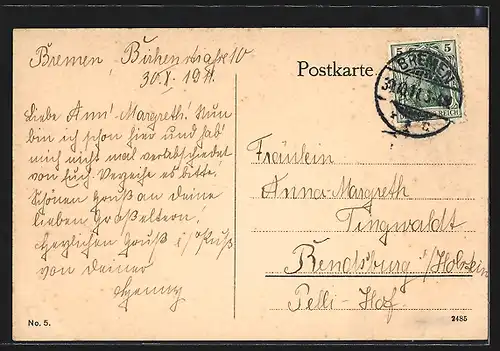 Bremen, 10
30.X.1911.
Postkarte.
5 5
BREMEN
REICH
Liebe Ann' Margreth! Nun
bin ich schon hier und hab'
mich nicht mal verabschiedet
von Euch. Verzeihe es bitte.
Schönen Gruß an deine
lieben Großeltern.
Herzlichen Gruß u. Kuß
von deiner
Henny
Fräulein
Anna-Margreth
Tingwaldt
Rendsburg i/Holstein
Pelli-Hof.
No. 5.
2485